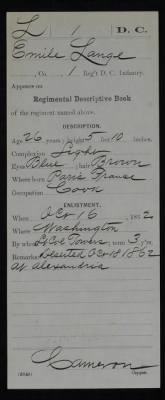 L 1 D. C.
Emile Lange
, Co. 1 Reg't D. C. Infantry.
Appears on
Regimental Descriptive Book
of the regiment named above.
DESCRIPTION.
Age 26 years; height 5 feet 10 inches.
Complexion Light
Eyes Blue; hair Brown
Where born Paris France
Occupation Cook
ENLISTMENT.
When Oct 16, 1862
Where Washington
By whom Lt Col Towers; term 3 y'rs.
Remarks Deserted Oct 18 1862
At Alexandria
Cameron
Copyist.